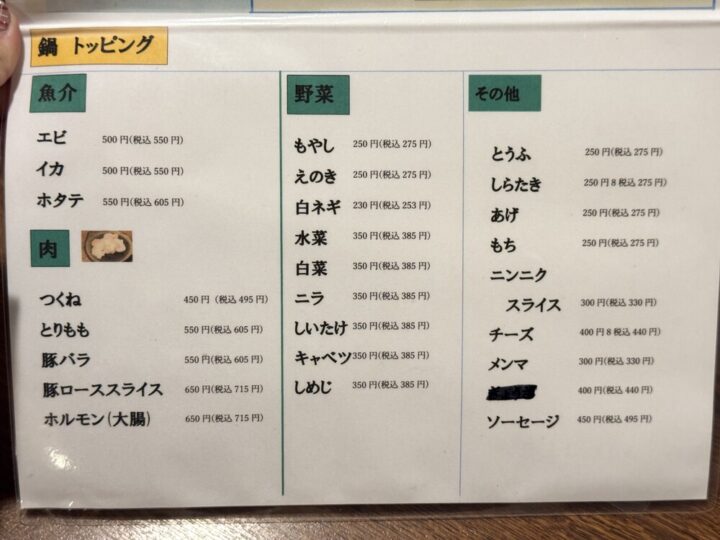 鍋 トッピング
魚介
エビ 500円(税込 550円)
イカ 500円(税込 550円)
ホタテ 550円(税込 605円)
肉
つくね 450円 (税込 495円)
とりもも 550円(税込 605円)
豚バラ 550円(税込 605円)
豚ローススライス 650円(税込 715円)
ホルモン(大腸) 650円(税込 715円)
野菜
もやし 250円(税込 275円)
えのき 250円(税込 275円)
白ネギ 230円(税込 253円)
水菜 350円(税込 385円)
白菜 350円(税込 385円)
ニラ 350円(税込 385円)
しいたけ 350円(税込 385円)
キャベツ 350円(税込 385円)
しめじ 350円(税込 385円)
その他
とうふ 250円(税込 275円)
しらたき 250円8税込 275円)
あげ 250円(税込 275円)
もち 250円(税込 275円)
ニンニク
スライス 300円(税込 330円)
チーズ 400円8税込 440円)
メンマ 300円(税込 330円)
400円(税込 440円)
ソーセージ 450円(税込 495円)